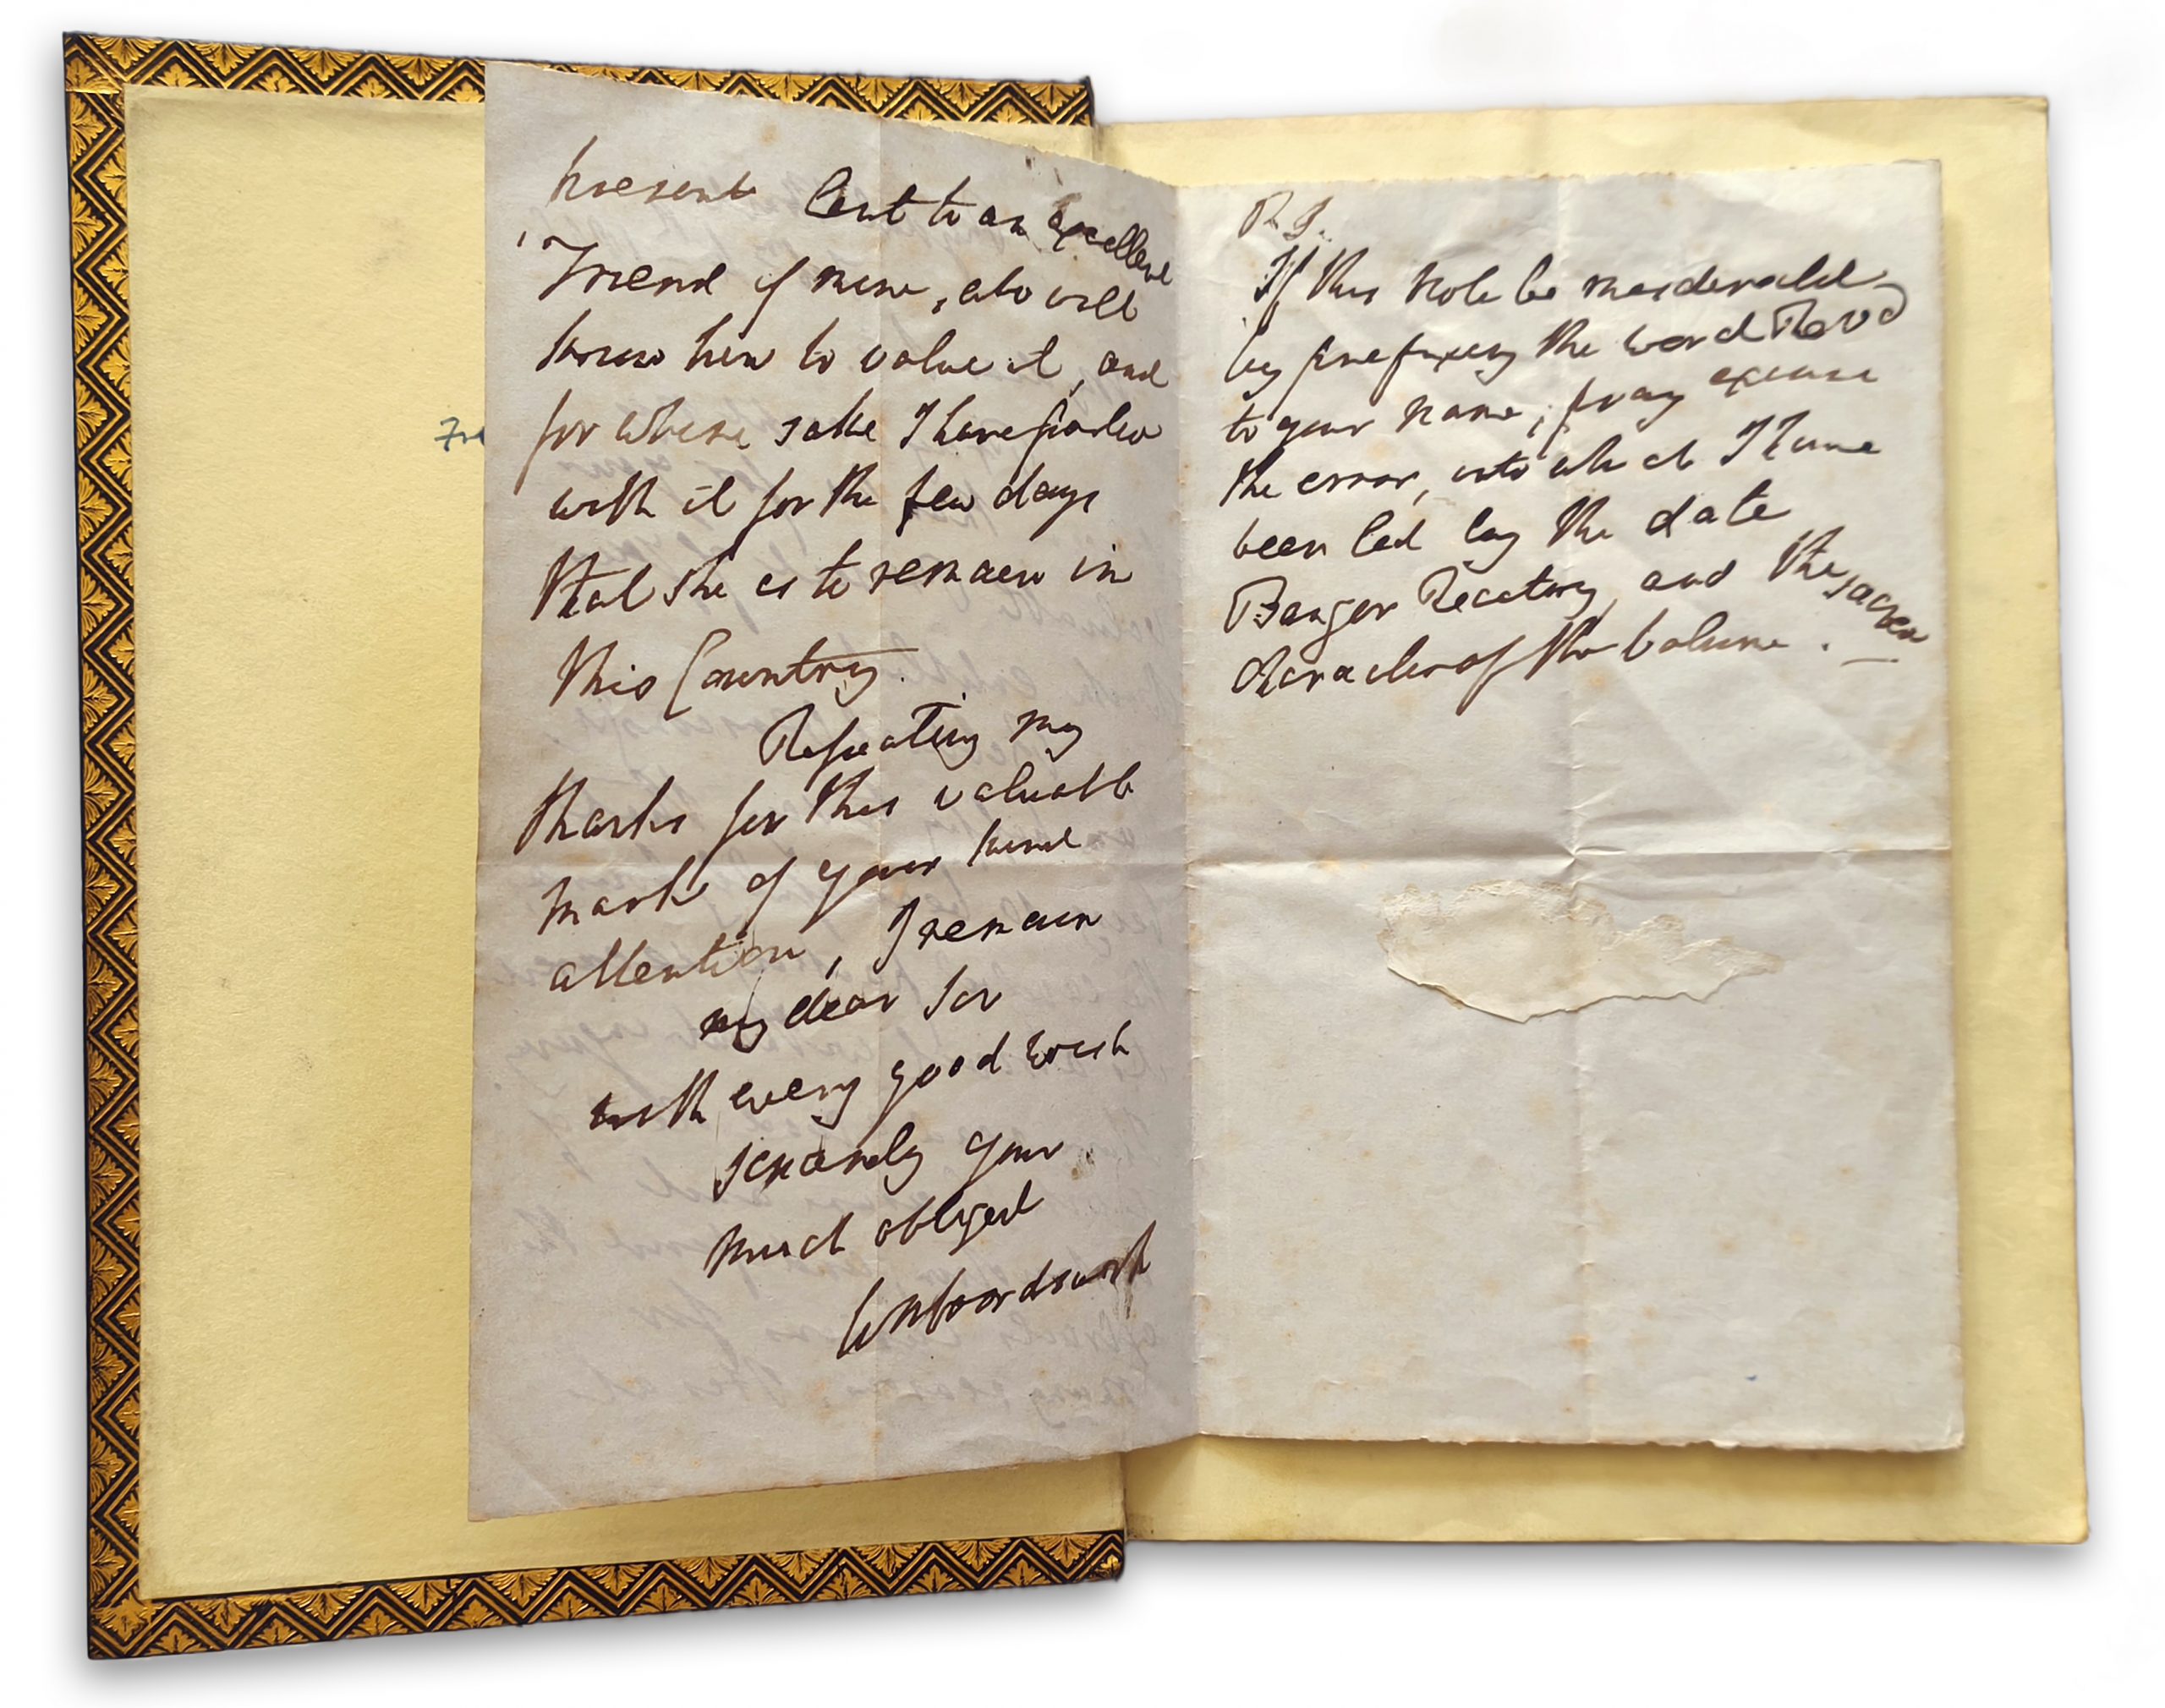 Fre
present lent to an excellent
Friend of mine, who will
know how to value it, and
for whose sake I have parted
with it for the few days
that she is to remain in
this Country.
Repeating my
thanks for this valuable
mark of your kind
attention, I remain
my dear Sir
with every good wish
sincerely your
much obliged
Wm Wordsworth
P.S.
If this note be misdirected
by prefixing the word Revd
to your name, pray excuse
the error, into which I have
been led by the date
Bangor Rectory, and the sacred
character of the Volume. —